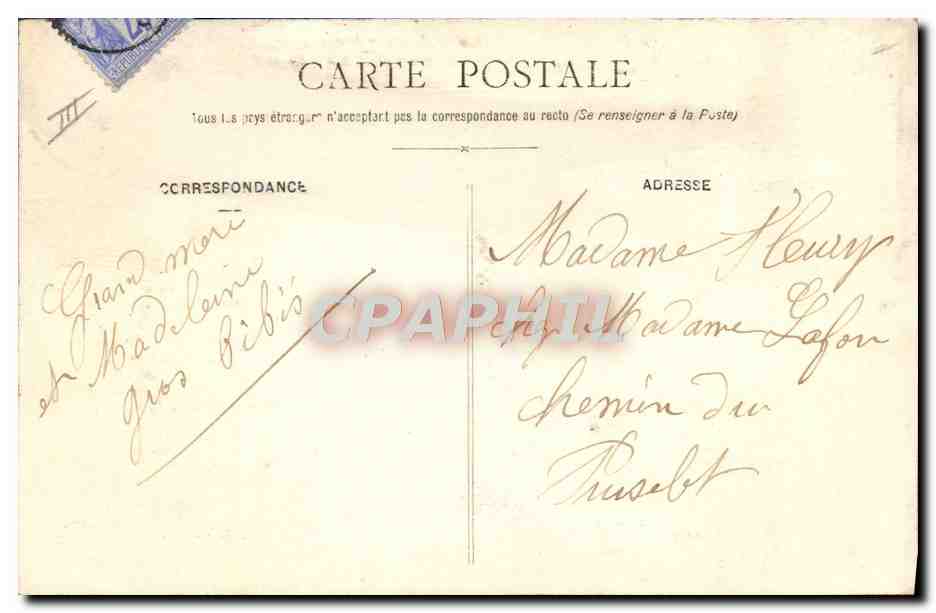 CARTE POSTALE
Tous les pays étrangers n'acceptent pas la correspondance au recto (Se renseigner à la Poste)
CORRESPONDANCE
Grand mere
et Madeleine
gros bibis
ADRESSE
Madame Fleury
chez Madame Lafon
Chemin du
CPAPHIL
III